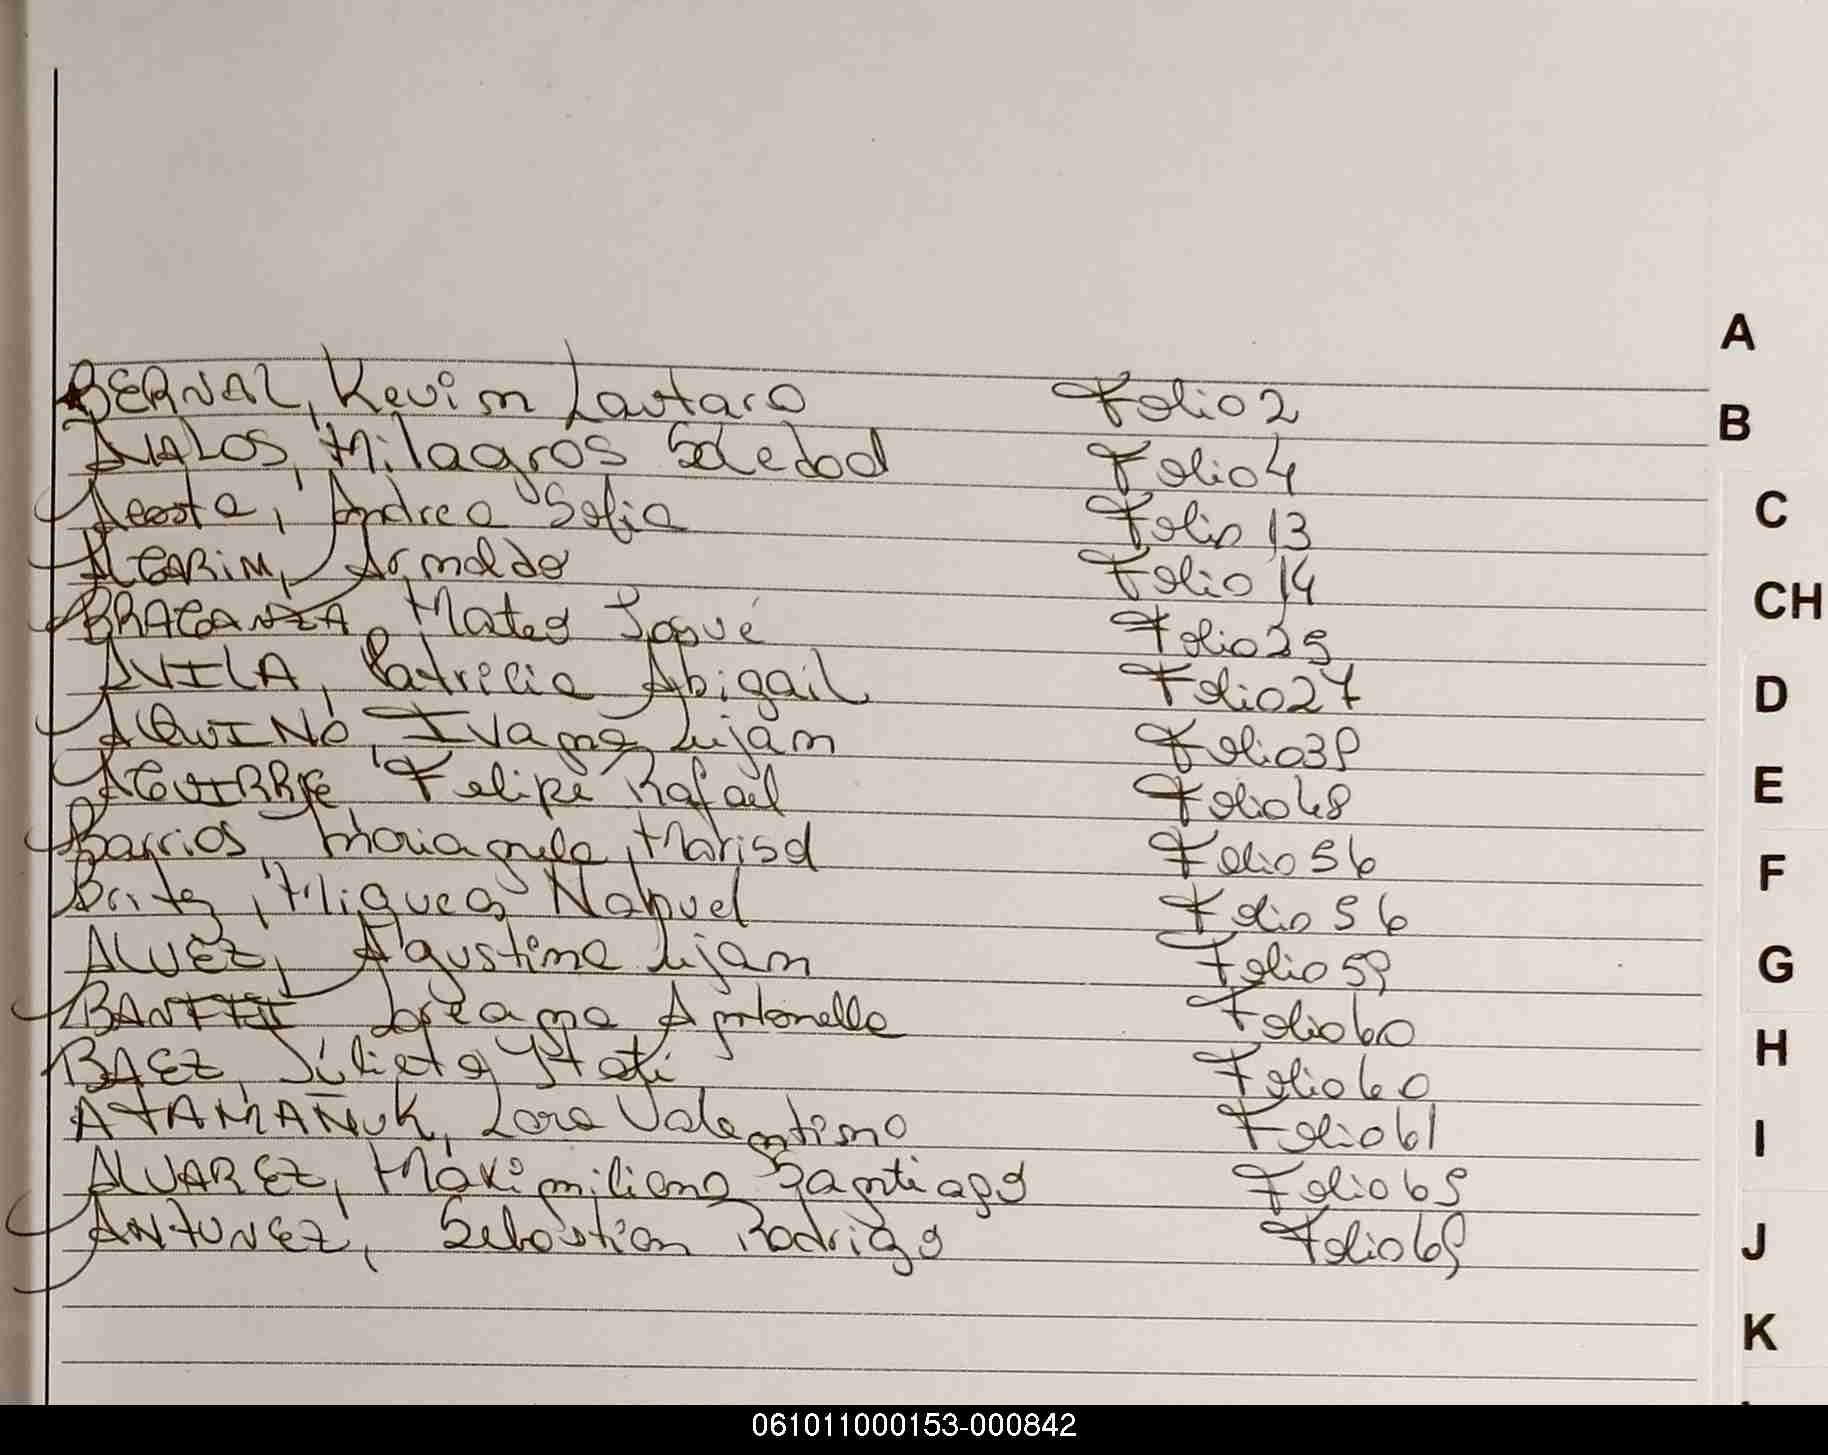 BERNAL, Kevin Lautaro Folio 2
AVALOS, Milagros Soledad Folio 4
Acosta, Andrea Sofia Folio 13
ALGARIN, Arnaldo Folio 14
BRAGANZA, Mateo Josué Folio 25
AVILA, Patricia Abigail Folio 27
AQUINO, Ivana Lujan Folio 39
AGUIRRE, Felipe Rafael Folio 48
Barrios, Marianela, Marisol Folio 56
Britez, Miqueas Nahuel Folio 56
ALVEZ, Agustina Lujan Folio 59
Antonella Folio 60
BAEZ, Julieta Folio 60
ATAMAÑUK, Lara Valentina Folio 61
ALVAREZ, Maximiliano Santiago Folio 65
ANTUNEZ, Sebastian Rodrigo Folio 69
A
B
C
CH
D
E
F
G
H
I
J
K
061011000153-000842